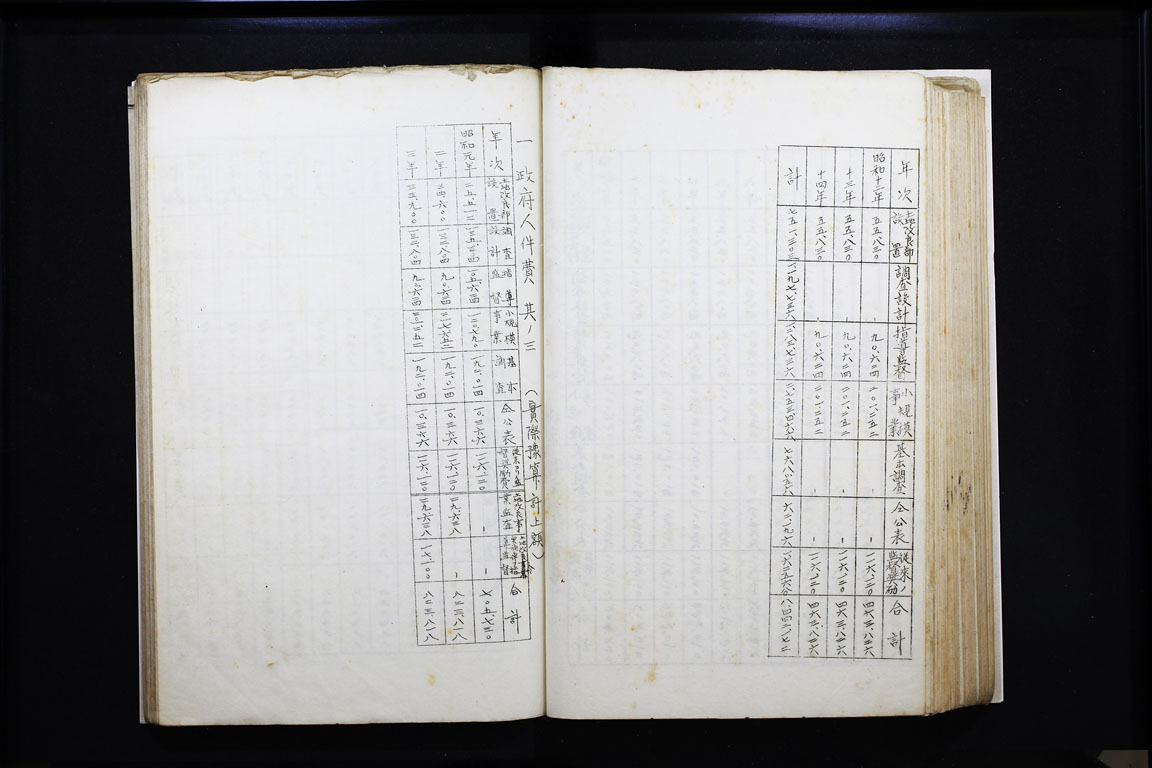 年次 土地改良部設置 調査設計 指導監督 小規模事業 基本調査 仝公表 従来ノ監督奨励 合計
昭和十二年 五五、八三〇 - - 九〇、六二四 二〇一、二五二 - - 一一六、一二〇 四六三、八二六
十三年 五五、八三〇 - 九〇、六二四 二〇一、二五二 - - 一一六、一二〇 四六三、八二六
十四年 五五、八三〇 - 九〇、六二四 二〇一、二五二 - - 一一六、一二〇 四六三、八二六
計 一、一九七、七三六 七六八、〇五六 六二、一九六 一、六二五、六八〇
一 政府人件費 其ノ三 (實際豫算計上額)
年次 土地改良部設置 調査設計 指導監督 小規模事業 基本調査 仝公表 従来ノ監督奨励費 土地改良事業監査 合計
昭和元年 二五、五一二 一三五、三〇四 一〇五、六二四 一二〇、七九〇 一九二、〇一四 一〇、三六六 一一六、一二〇 - - 七〇五、七三〇
二年 三四、六〇〇 一三二、八〇四 九〇、六二四 二一七、六五二 一九二、〇一四 一〇、三六六 一一六、一二〇 二九、六三八 - 八二三、八一八
三年 三三、九〇〇 一三二、八〇四 九〇、六二四 二〇一、二五二 一九二、〇一四 一〇、三六六 一一六、一二〇 二九、六三八 一六、一〇〇 八二二、八一八